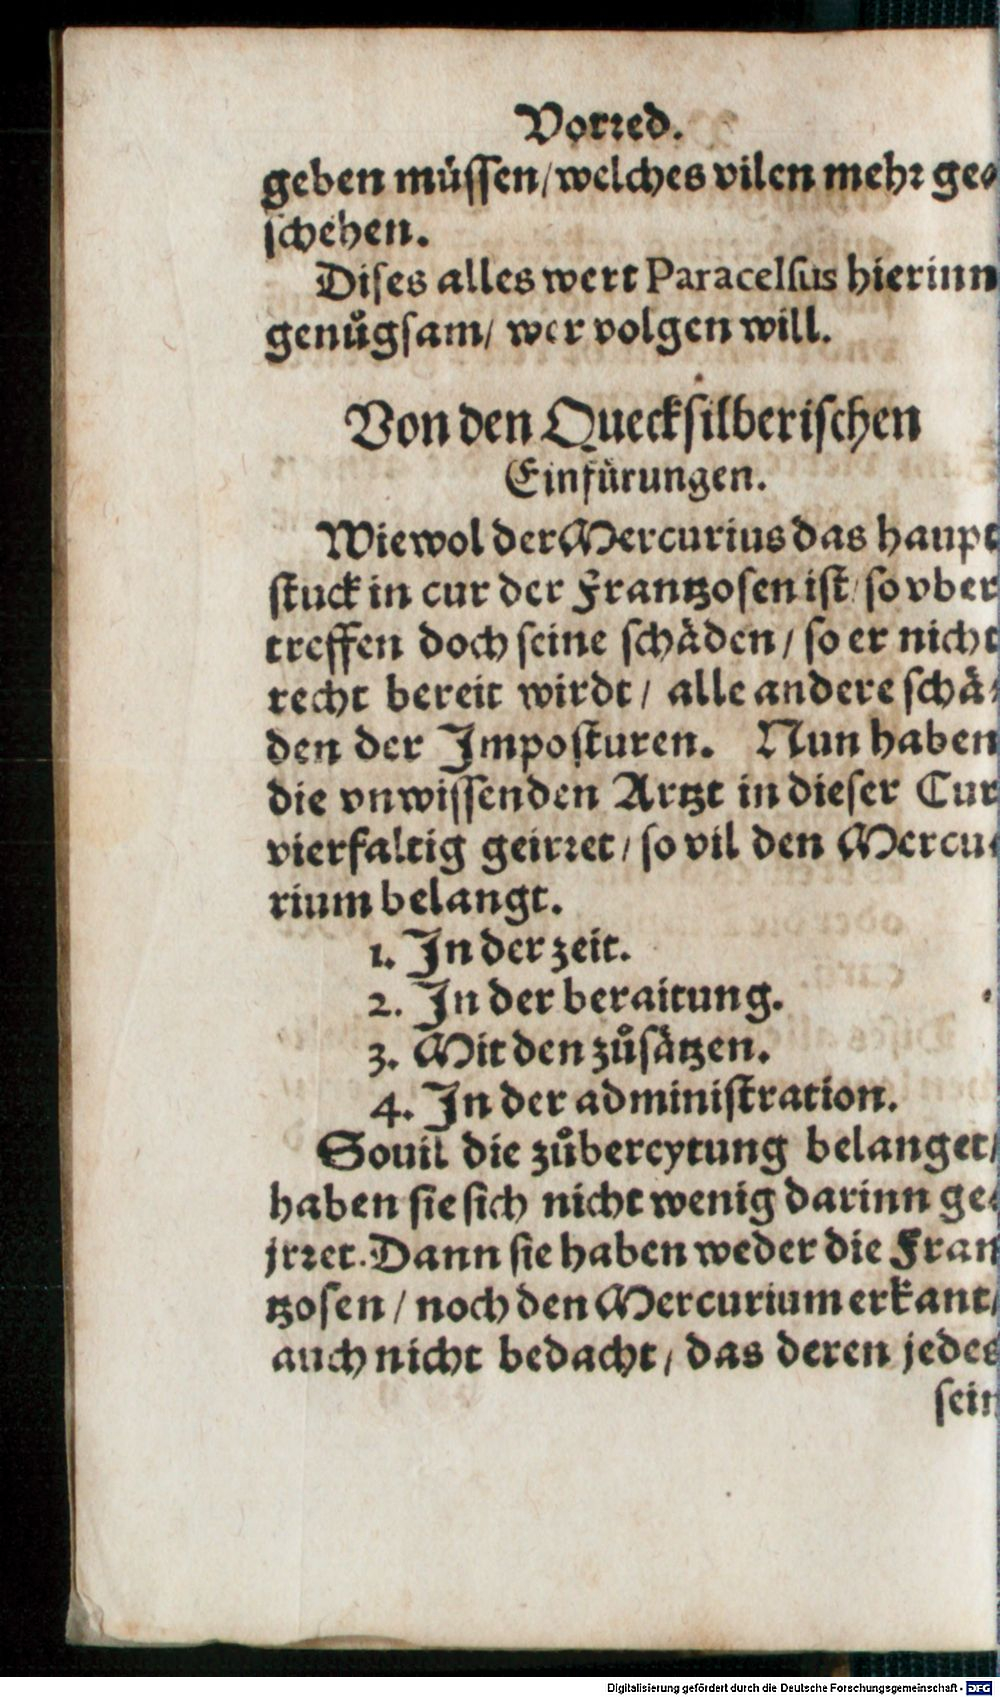 Vorꝛed.
geben müssen/welches vilen mehꝛ ge⸗
schehen.
Dises alles wert Paracelsus hierinn
genůgsam/ wer volgen will.
Von den Quecksilberischen
Einfürungen.
Wiewol der Mercurius das haupt
stuck in cur der Frantzosen ist/ so vber
treffen doch seine schäden/ so er nicht
recht bereit wirdt/ alle andere schä⸗
den der Imposturen. Nun haben
die vnwissenden Artzt in dieser Cur
vierfaltig geirꝛet/ so vil den Mercu⸗
rium belangt.
1. In der zeit.
2. In der beraitung.
3. Mit den zůsätzen.
4. In der administration.
Souil die zůbereytung belanget/
haben sie sich nicht wenig darinn ge⸗
jrꝛet. Dann sie haben weder die Fran
tzosen/ noch den Mercurium erkant/
auch nicht bedacht/ das deren jedes
sein
Digitalisierung gefördert durch die Deutsche Forschungsgemeinschaft - DFG